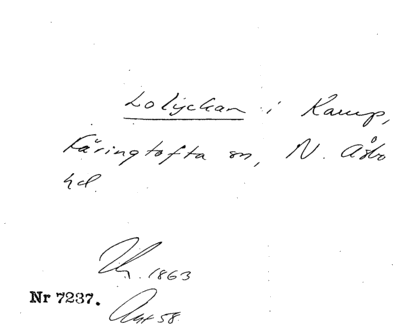 Lolyckan i Karup,
Färingtofta sn, N. Åsbo
hd.
1863
Nr 7237.
Akt 58.